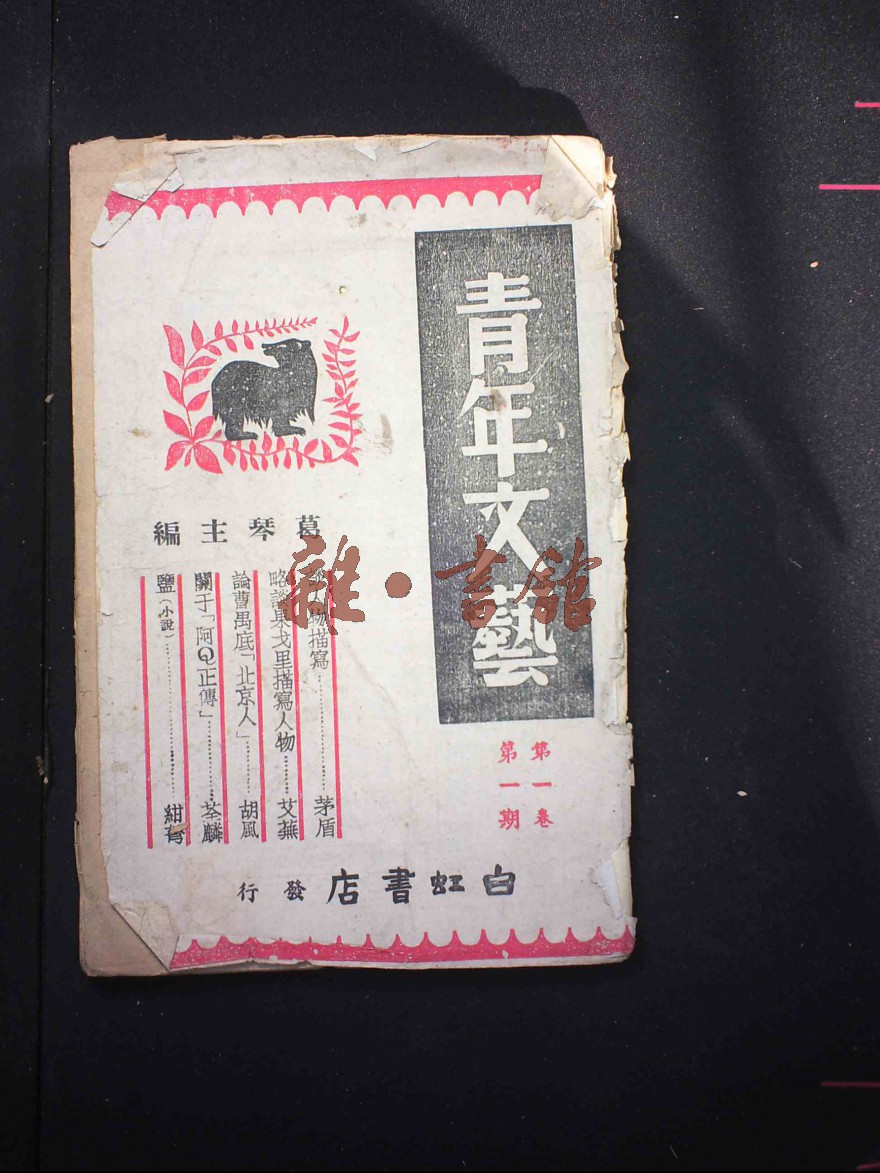 青年文藝
第一卷
第一期
葛琴主編
物描寫……茅盾
略談果戈里描寫人物……艾蕪
論曹禺底「北京人」……胡風
關于「阿Q正傳」……荃麟
鹽（小說）……紺弩
白虹書店發行
雜·書舘